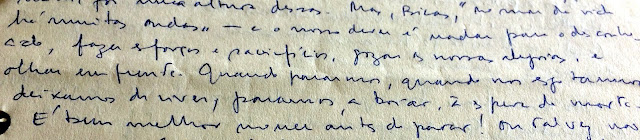 foi nessa altura dessas. Mas, "Bicas", "no mar da vida
há muitas ondas" — e o nosso dever é nadar para o desconhe-
cido, fazer esforços e sacrifícios, gozar as nossas alegrias, e
olhar em frente. Quando paramos, quando nos agitamos
deixamos de viver, paramos a boiar, à espera da morte.
E' bem melhor morrer antes de parar! Ou talvez não